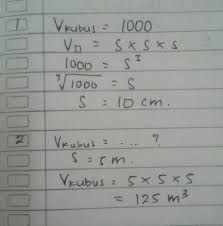 1 Vkubus = 1000
V□ = S × S × S
1000 = S³
³√1000 = S
S = 10 cm.
2 Vkubus = ... ?
S = 5 m.
Vkubus = 5 × 5 × 5
= 125 m³